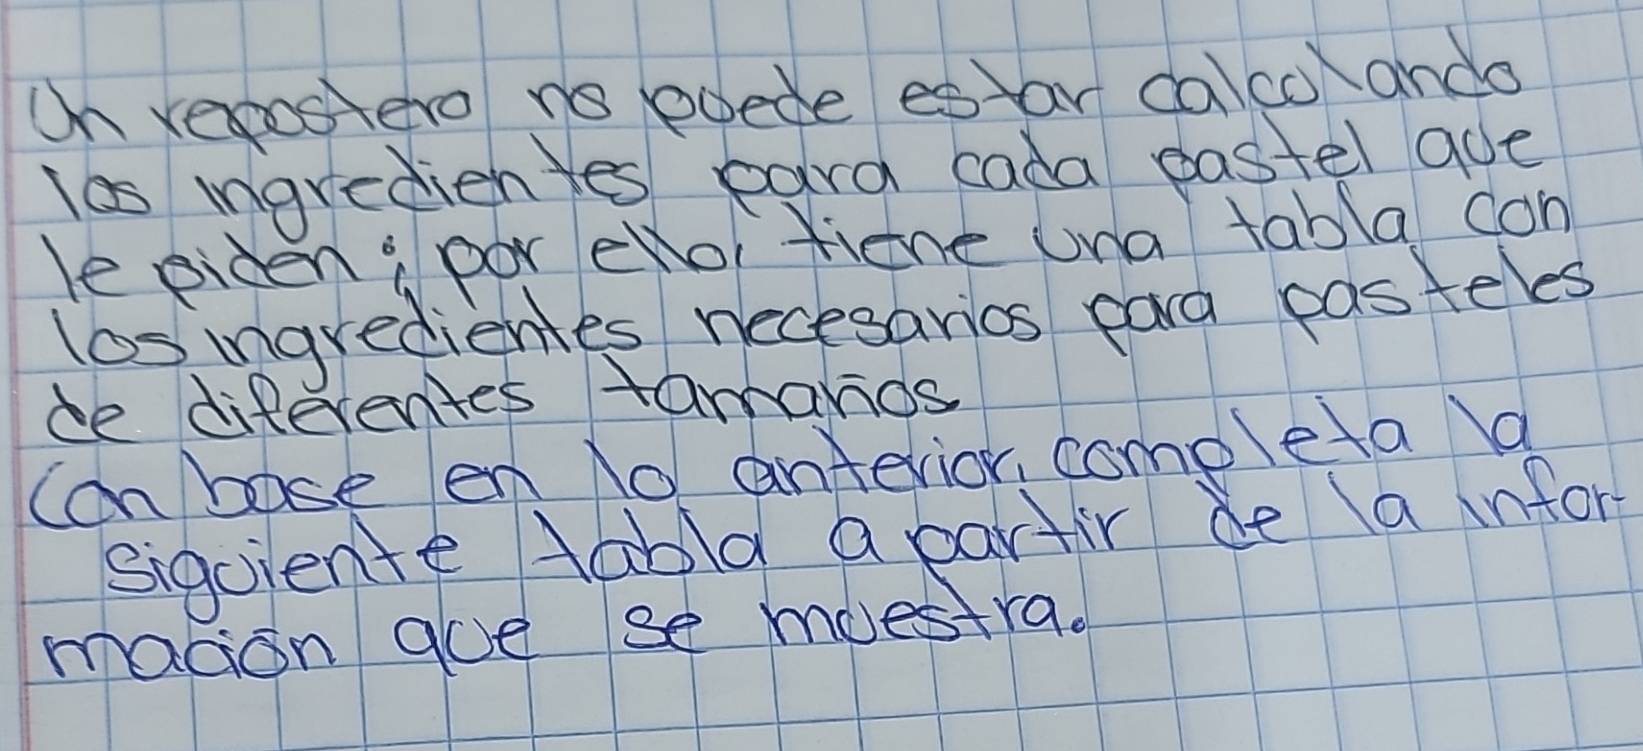 Un repostero no puede estar calculando
los ingredientes para cada pastel que
le piden; por ello, tiene una tabla con
los ingredientes necesarios para pasteles
de diferentes tamaños
Con base en lo anterior, completa la
siguiente tabla a partir de la infor-
mación que se muestra.